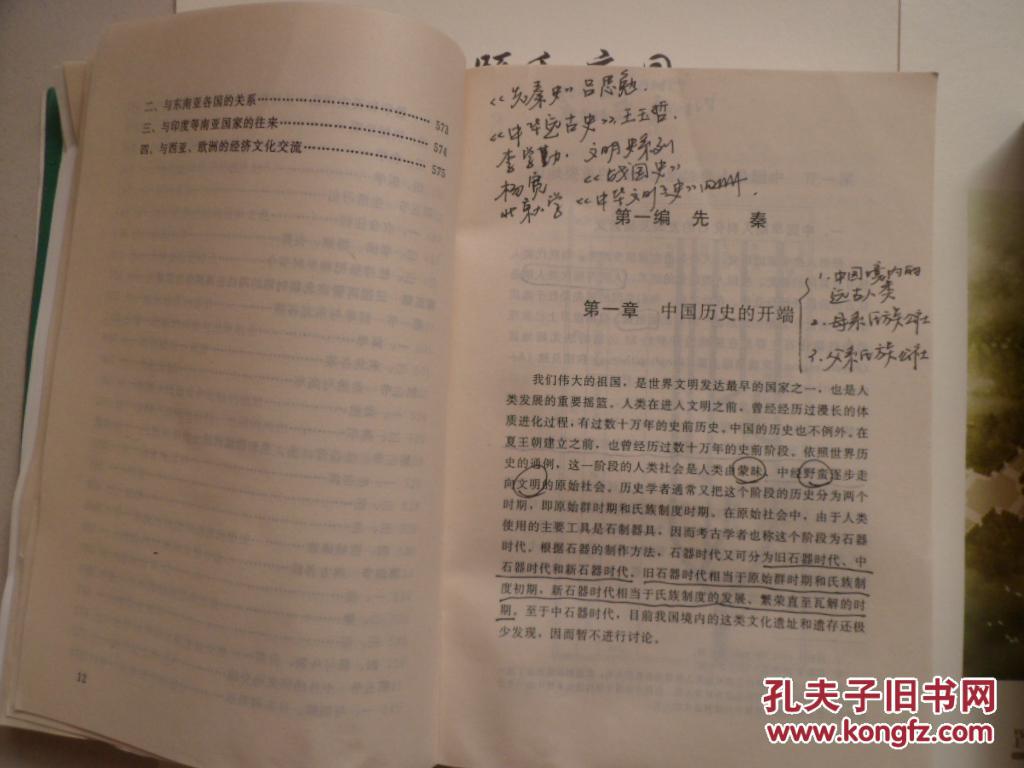 二、与东南亚各国的关系……573
三、与印度等南亚国家的往来……574
四、与西亚、欧洲的经济文化交流……575
12
《先秦史》吕思勉.
《中华远古史》王玉哲.
李学勤. 文明史系列
杨宽 《战国史》
北京大学 《中华文明之史》四册.
第一编 先 秦
第一章 中国历史的开端
1. 中国境内的
远古人类
2. 母系氏族公社
3. 父系氏族公社
我们伟大的祖国，是世界文明发达最早的国家之一，也是人
类发展的重要摇篮。人类在进入文明之前，曾经经历过漫长的体
质进化过程，有过数十万年的史前历史。中国的历史也不例外。在
夏王朝建立之前，也曾经历过数十万年的史前阶段。依照世界历
史的通例，这一阶段的人类社会是人类由蒙昧、中经野蛮逐步走
向文明的原始社会。历史学者通常又把这个阶段的历史分为两个
时期，即原始群时期和氏族制度时期。在原始社会中，由于人类
使用的主要工具是石制器具，因而考古学者也称这个阶段为石器
时代。根据石器的制作方法，石器时代又可分为旧石器时代、中
石器时代和新石器时代。旧石器时代相当于原始群时期和氏族制
度初期，新石器时代相当于氏族制度的发展、繁荣直至瓦解的时
期。至于中石器时代，目前我国境内的这类文化遗址和遗存还极
少发现，因而暂不进行讨论。
孔夫子旧书网
www.kongfz.com